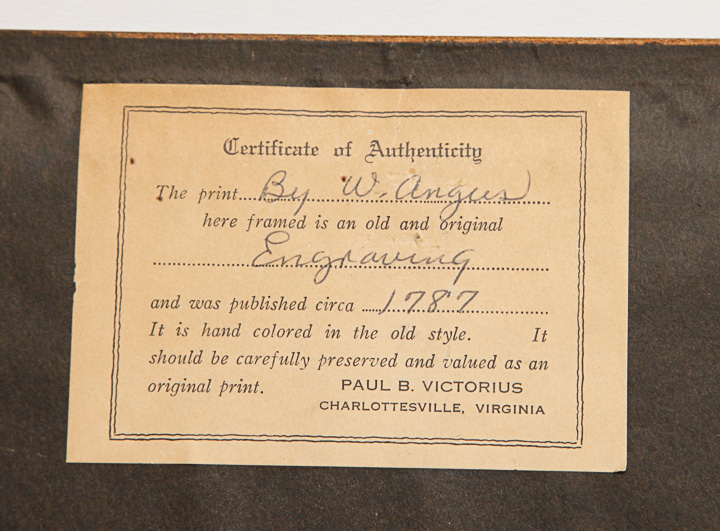 Certificate of Authenticity
The print....By W. Angus
here framed is an old and original
Engraving
and was published circa ......1787
It is hand colored in the old style. It
should be carefully preserved and valued as an
original print. PAUL B. VICTORIUS
CHARLOTTESVILLE, VIRGINIA